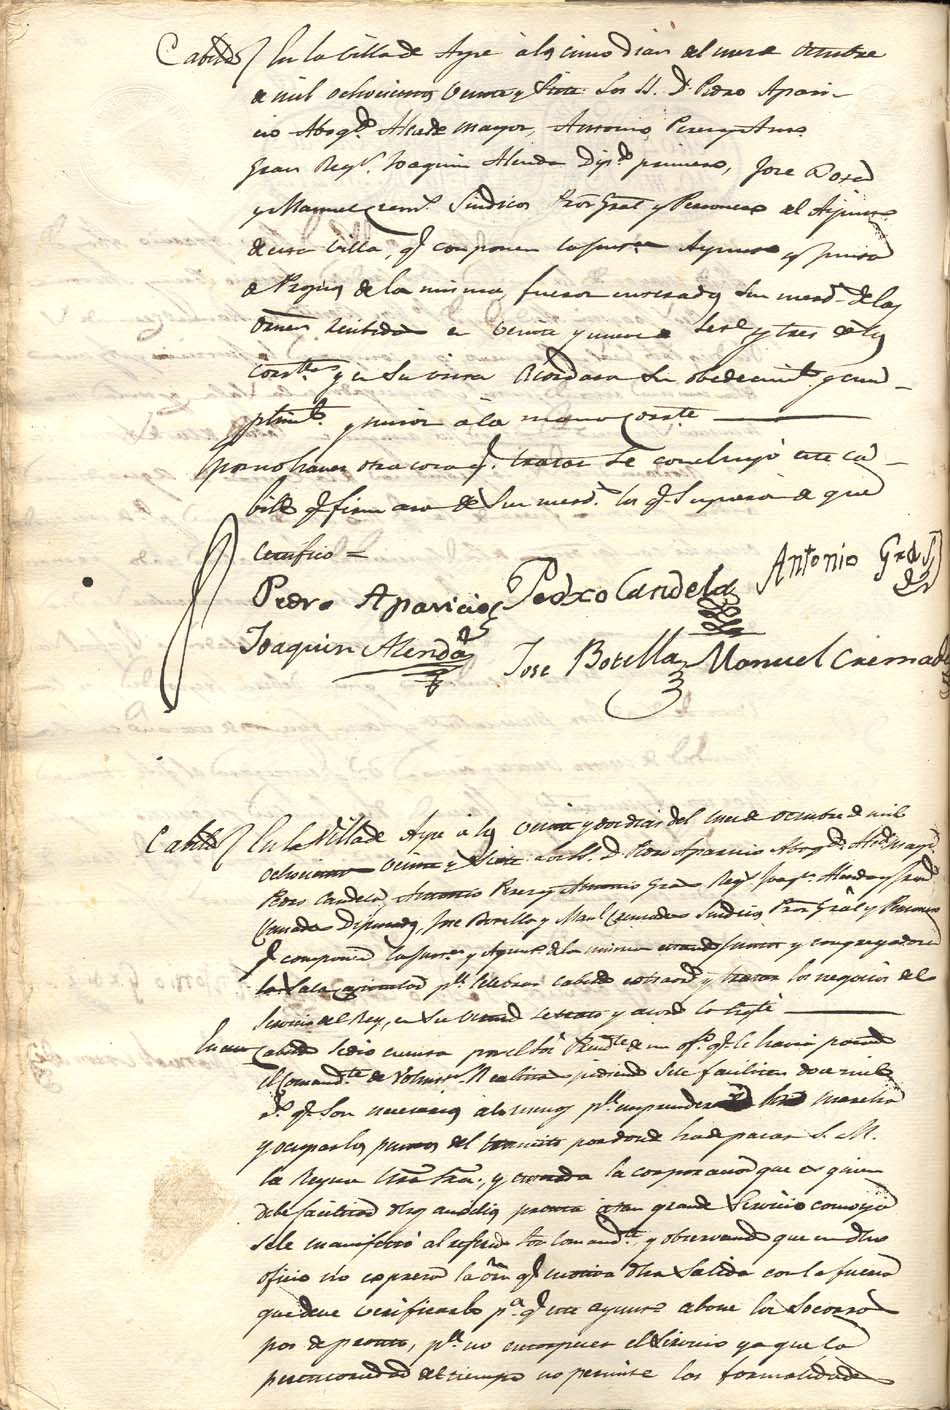 Cabildo En la Villa de Aspe à los cinco dias del mes de Octubre
de mil ochocientos veinte y siete: Los SS. Dn. Pedro Apari-
cio Abogdo. Alcade mayor, Antonio Perez, Antonio
Gran Regs. Joaquin Alenda Dipdo. primero, Jose Botella
y Manuel Sindicos Pror Gral y Personero del Ayunto
de esta Villa, qe componen la Junta Ayunto y Junta
de Propios de la misma, fueron enterados Sus mercds. de las
Ordenes recibidas en veinte y nueve de y tres de los
corrtes. y en Su vista Acordaron Su obedecimto. y cum-
plimto. y union à la mano corrte.
por no haver otra cosa qe. tratar Se concluyò este Ca-
bildo qe firmaron de Sus mercds. los qe. Supieron de que
Certifico =
Pedro Aparicio Pedro Candela Antonio Gras
Joaquin Alenda Jose Botella Manuel Cremades
Cabildo En la Villa de Aspe à los veinte y dos dias del mes de Octubre de mil
ochocientos veinte y Siete: los SS. D. Pedro Aparicio Abogdo. Alcde mayor.
Pedro Candela, Antonio Perez, Antonio Gras Regs Joaqn. Alenda y
Cremades Diputados, Jose Botella y Manl Cremades Sindicos Pror Gràl y Personero
qe componen la Junta y Ayunto. de la misma estando juntos y congregados en
la Sala Capitular pa. Celebrar Cabildo y tratar los negocios del
Servicio del Rey, en Su virtud Se trato y acordo lo sigte
En este Cabildo Se dio cuenta por el Sor. Presidte de un ofo. qe. le havia pasado
el Comandte de Voluntos Realistas pidiendo Se le faciliten doce mil
rs. qe. Son necesarios à lo menos pa. emprender la marcha
y ocupar los puntos del transito por donde ha de pasar S. M.
la Reyna Ntra Sra., y enterada la corporacion que es quien
debe facilitar dhos ausilios pronta à tan grande Servicio como ya
Se le manifestó al referido Sor Comandte., y observando que en dho
oficio no expresa la orn qe motiva dha Salida con la fuerza
que deve verificarlo pa. qe este ayunto abone los Socorros
por de pronto, pa. no entorpecer el Servicio ya que la
perentoriedad del tiempo no permite las formalidades